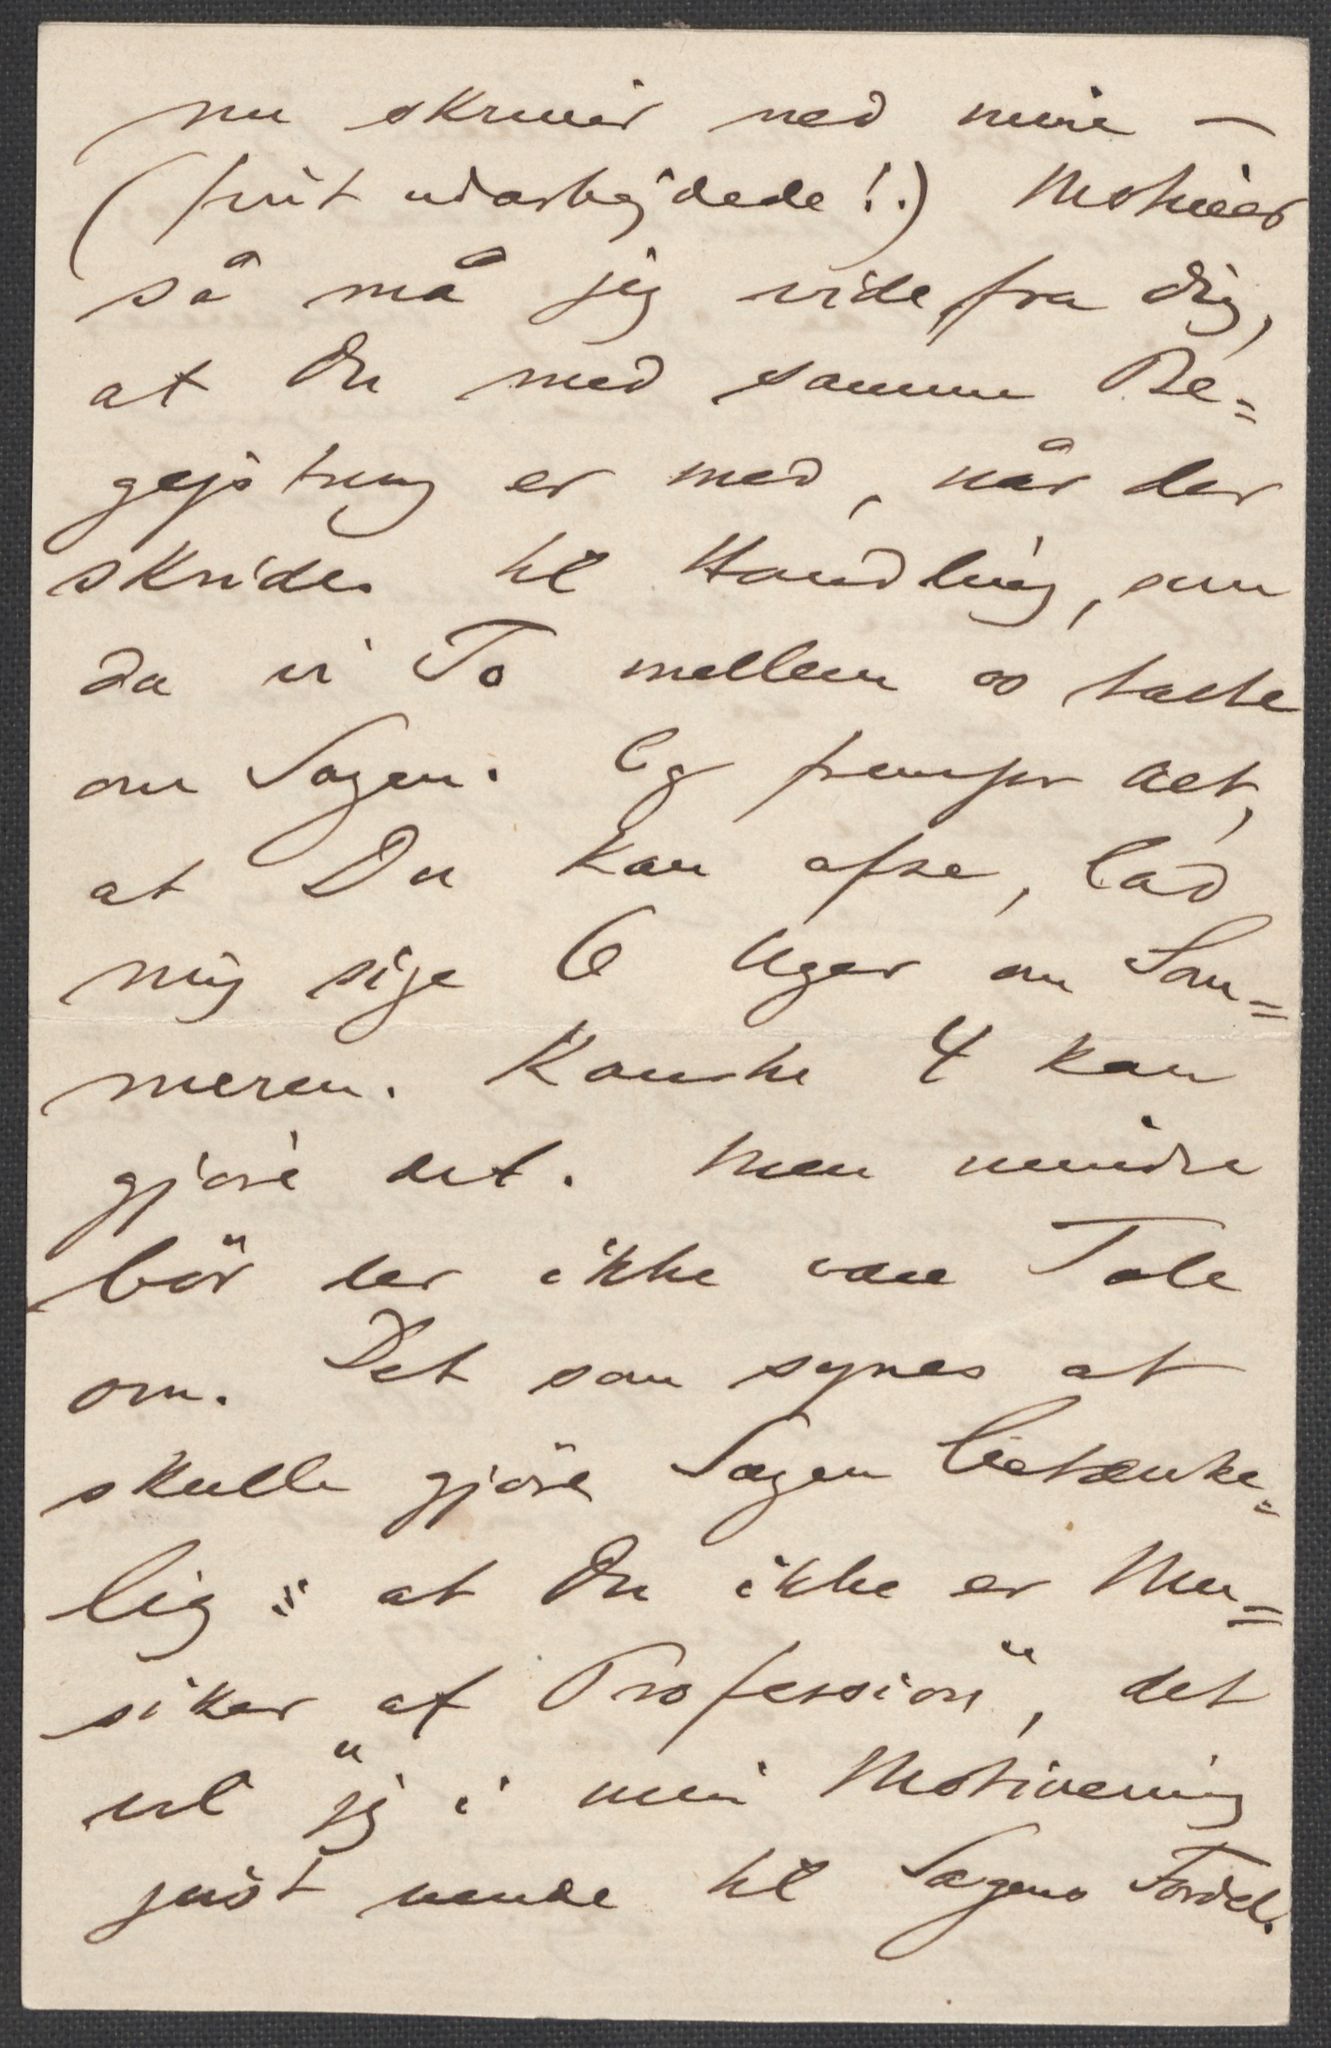 nu skriver ned mine –
(fint udarbejdede!.) Motiver
så må jeg vide fra dig,
at Du med samme Be=
gejstring er med, når der
skrides til Handling, som
da vi To mellem os talte
om Sagen. Og fremfor alt,
at Du kan afse, lad
mig sige 6 Uger om Som=
meren. Kanske 4 kan
gjøre det. Men mindre
bör der ikke være Tale
om. Det som synes at
skulle gjöre Sagen betænke=
lig: „at Du ikke er Mu=
siker af Profession“, det
vil jeg i min Motivering
just vende til Sagens Fordel.